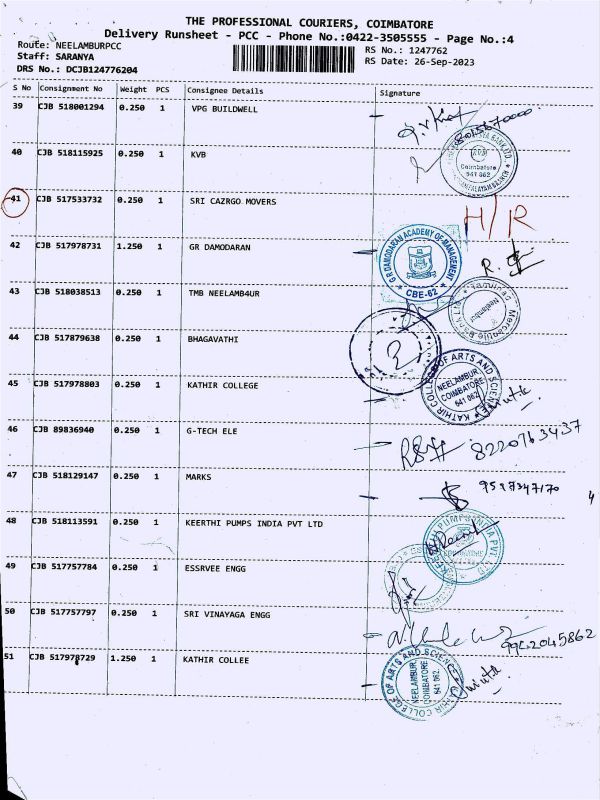 THE PROFESSIONAL COURIERS, COIMBATORE
Delivery Runsheet - PCC - Phone No.:0422-3505555 - Page No.:4
Route: NEELAMBURPCC
RS No.: 1247762
Staff: SARANYA
RS Date: 26-Sep-2023
DRS No.: DCJB124776204
S No Consignment No Weight PCS Consignee Details Signature
39 CJB 518001294 0.250 1 VPG BUILDWELL
40 CJB 518115925 0.250 1 KVB
Coimbatore
641 062
41 CJB 517533732 0.250 1 SRI CAZRGO MOVERS H/R
42 CJB 517978731 1.250 1 GR DAMODARAN
G R DAMODARAN ACADEMY OF MANAGEMENT
CBE-62
43 CJB 518038513 0.250 1 TMB NEELAMB4UR
Neelambur
44 CJB 517879638 0.250 1 BHAGAVATHI
45 CJB 517978803 0.250 1 KATHIR COLLEGE
KATHIR COLLEGE OF ARTS AND SCIENCE
NEELAMBUR
COIMBATORE
641 062
46 CJB 89836940 0.250 1 G-TECH ELE
8220763437
47 CJB 518129147 0.250 1 MARKS
9597347170
4
48 CJB 518113591 0.250 1 KEERTHI PUMPS INDIA PVT LTD
49 CJB 517757784 0.250 1 ESSRVEE ENGG
50 CJB 517757797 0.250 1 SRI VINAYAGA ENGG
51 CJB 517978729 1.250 1 KATHIR COLLEE
KATHIR COLLEGE OF ARTS AND SCIENCE
NEELAMBUR,
COIMBATORE
641 062